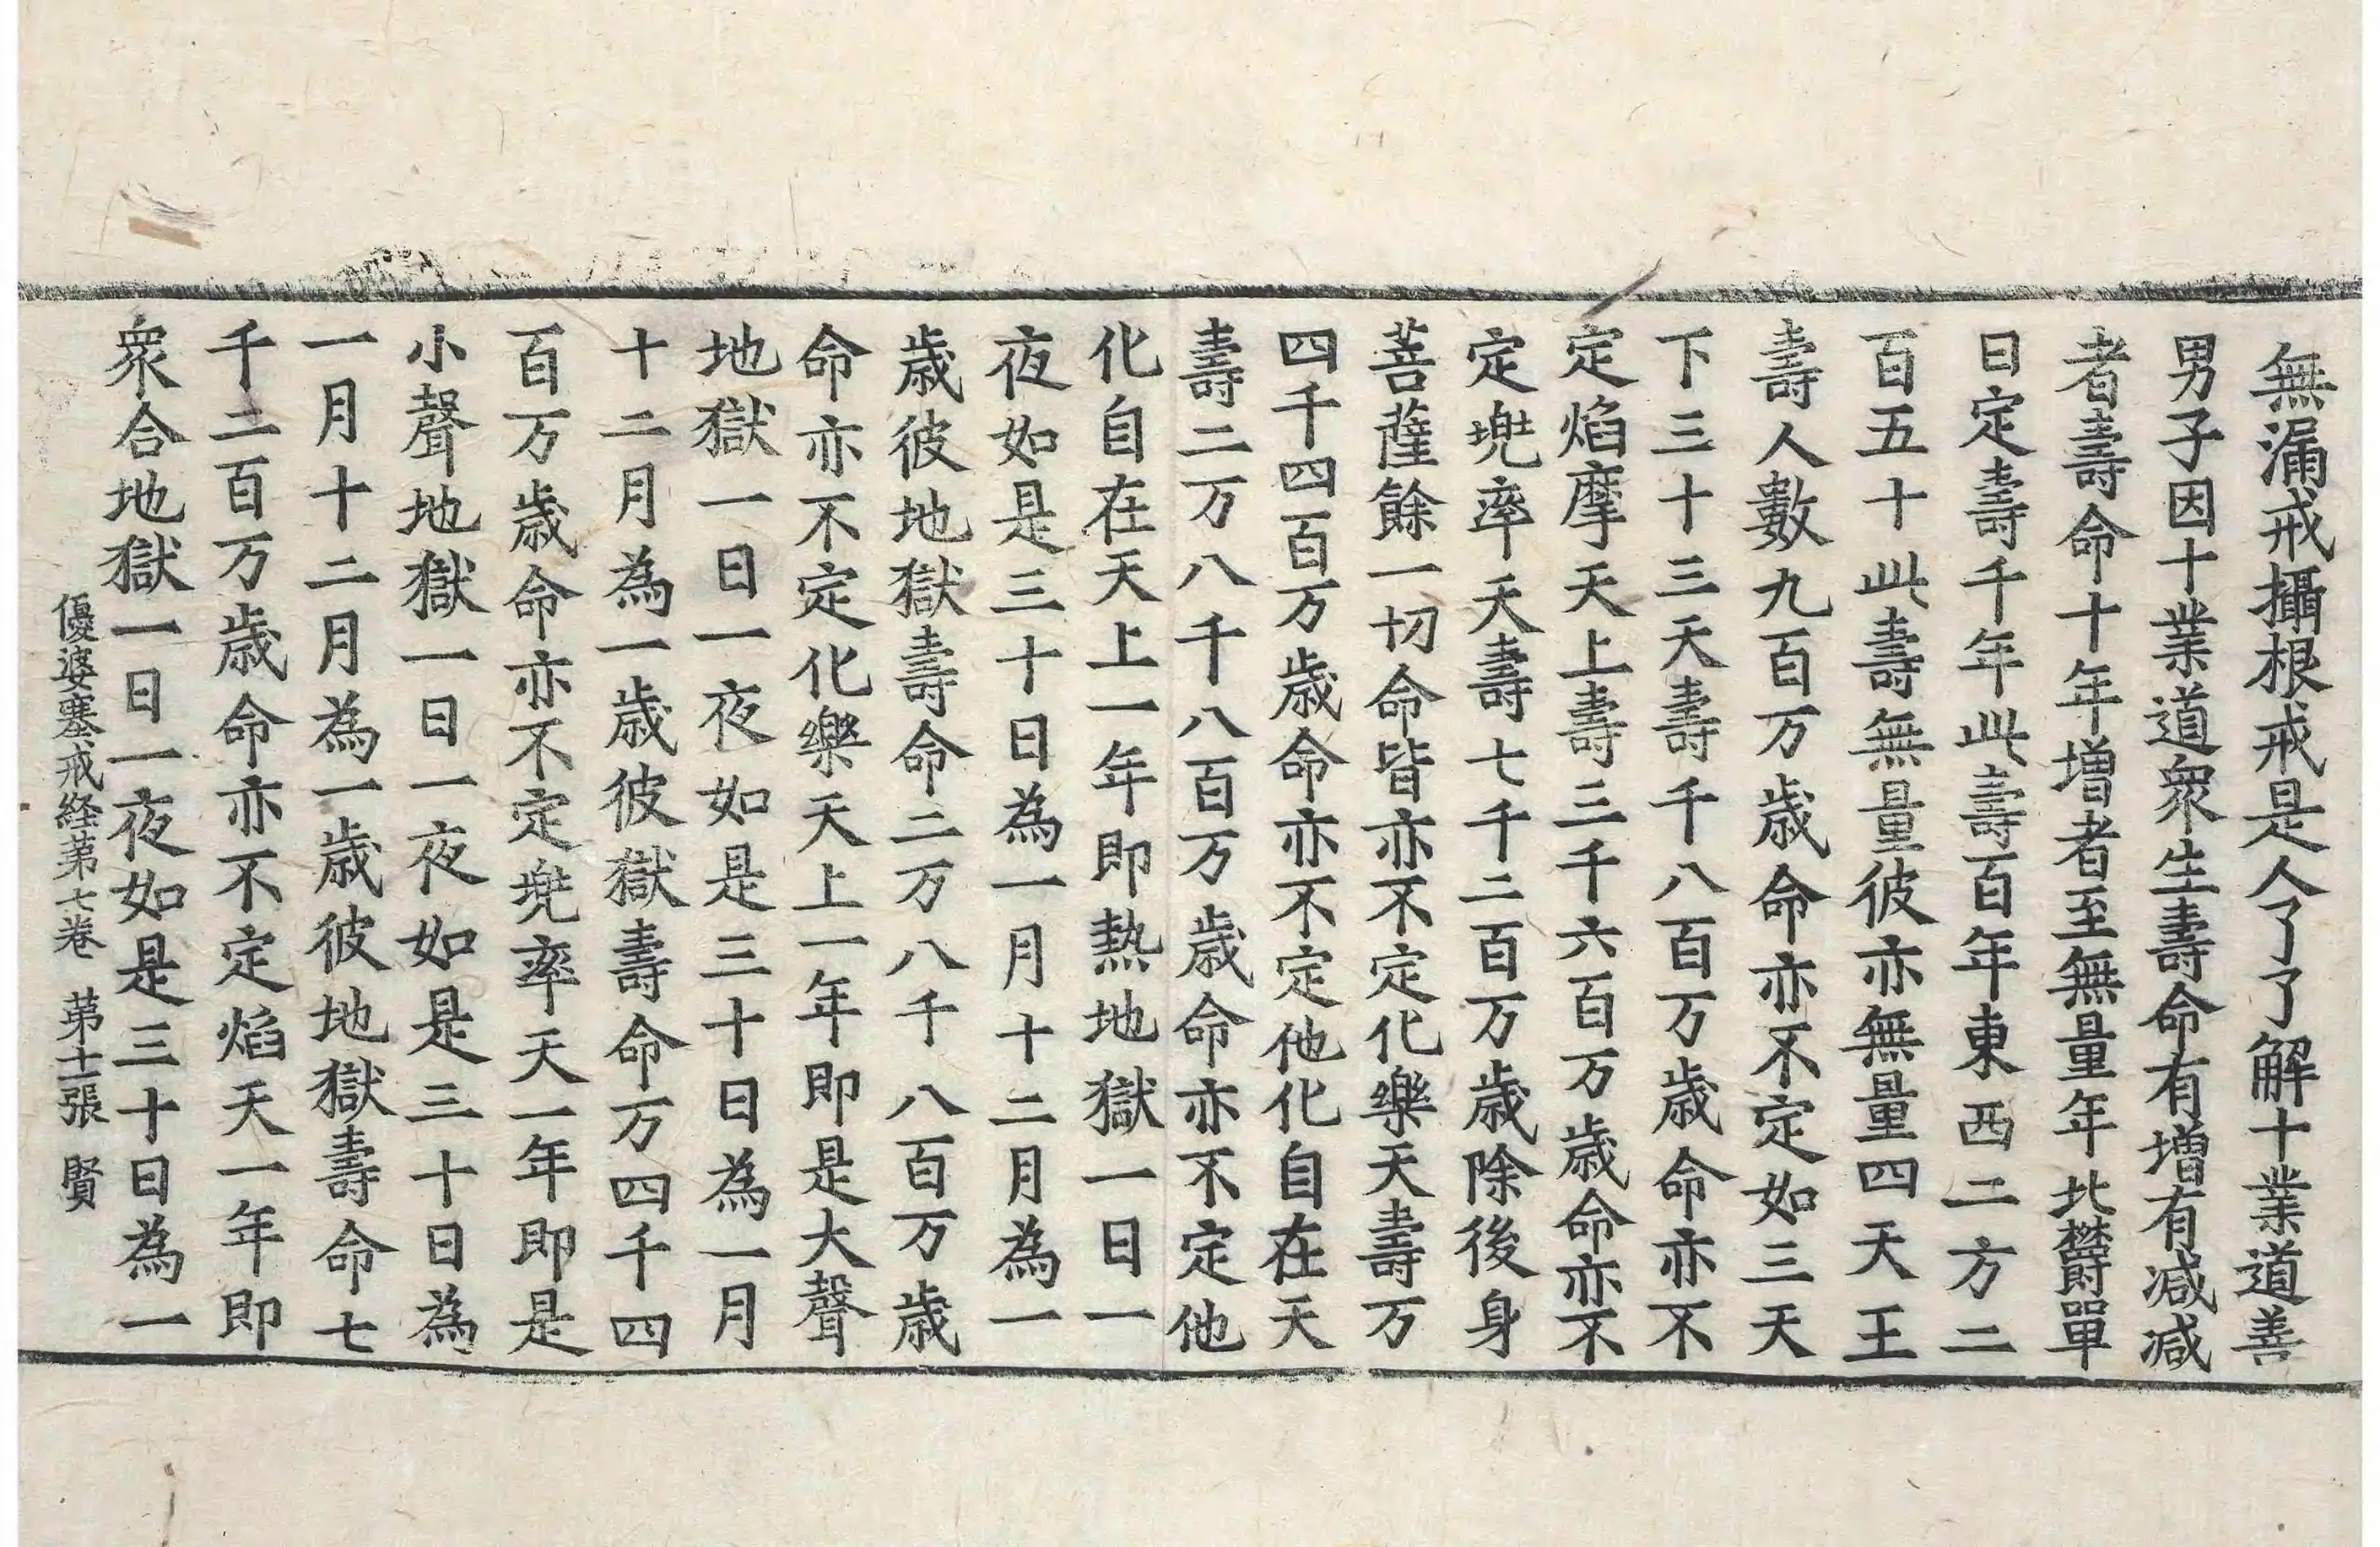 無漏戒攝根戒是人了了解十業道善
男子因十業道衆生壽命有增有減減
者壽命十年增者至無量年北欝單
曰定壽千年此壽百年東西二方二
百五十此壽無量彼亦無量四天王
壽人數九百万歲命亦不定如三天
下三十三天壽千八百万歲命亦不
定焰摩天上壽三千六百万歲命亦不
定兠率天壽七千二百万歲除後身
菩薩餘一切命皆亦不定化樂天壽万
四千四百万歲命亦不定他化自在天
壽二万八千八百万歲命亦不定他
化自在天上一年即熱地獄一日一
夜如是三十日為一月十二月為一
歲彼地獄壽命二万八千八百万歲
命亦不定化樂天上一年即是大聲
地獄一日一夜如是三十日為一月
十二月為一歲彼獄壽命万四千四
百万歲命亦不定兠率天一年即是
小聲地獄一日一夜如是三十日為
一月十二月為一歲彼地獄壽命七
千二百万歲命亦不定焰天一年即
衆合地獄一日一夜如是三十日為一
優婆塞戒経第七卷 第十一張 賢